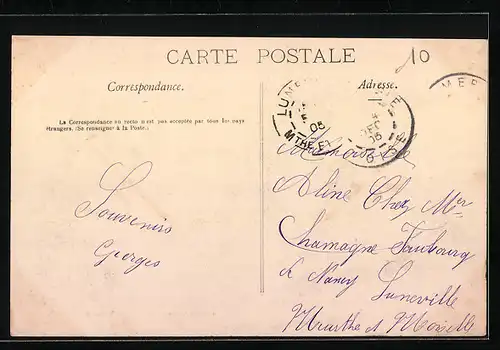 CARTE POSTALE
10
Correspondance.
Adresse.
La Correspondance au recto n'est pas acceptée par tous les pays
étrangers. (Se renseigner à la Poste.)
05
DEC
05
Souvenirs
Georges
Aline Chez Mr
Chamagne Faubourg
de Nancy Luneville
Meurthe et Moselle